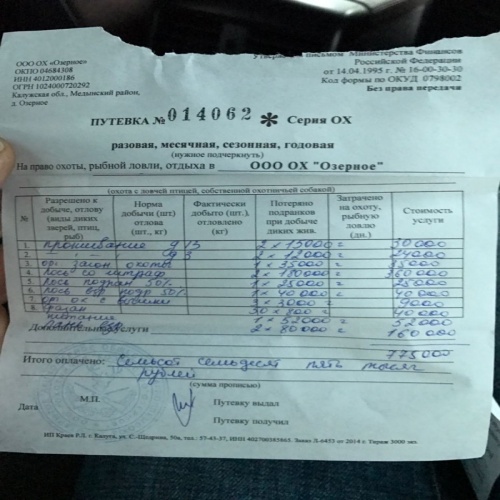 Утвержден письмом Министерства Финансов
Российской Федерации
от 14.04.1995 г. № 16-00-30-30
Код формы по ОКУД 0798002
Без права передачи
ООО ОХ «Озерное»
ОКПО 04684308
ИНН 4012000186
ОГРН 1024000720292
Калужская обл., Медынский район,
д. Озерное
ПУТЕВКА № 014062 * Серия ОХ
разовая, месячная, сезонная, годовая
(нужное подчеркнуть)
На право охоты, рыбной ловли, отдыха в ООО ОХ "Озерное"
(охота с ловчей птицей, собственной охотничьей собакой)
№ Разрешено к добыче, отлову (виды диких зверей, птиц, рыб) Норма добычи (шт) отлова (шт., кг) Фактически добыто (шт.), отловлено (кг) Потеряно подранков при добыче диких жив. Затрачено на охоту, рыбную ловлю (дн.) Стоимость услуги
1. проживание 9/3 2 × 15000 г 30 000
2. 2 × 12000 г 24000
3. орг загон охот 1 × 35000 г 35000
4. Лось со штраф 2 × 180000 г 360 000
5. Лось подран 50% 1 × 25000 г 25000
6. Лось 50% 1 × 40 000 г 40 000
7. 3 × 3000 г 9000
8. фазан 50 × 800 г 40 000
питание 1 × 52000 г 52000
Дополнительно услуги 2 × 80000 г 160 000
775000
Итого оплачено: Семьсот семьдесят пять тысяч
рублей
(сумма прописью)
М.П.
Дата
Путевку выдал
Путевку получил
ИП Краев Р.Л. г. Калуга, ул. С.-Щедрина, 50а, тел.: 57-43-37, ИНН 402700385865. Заказ Л-6453 от 2014 г. Тираж 3000 экз.